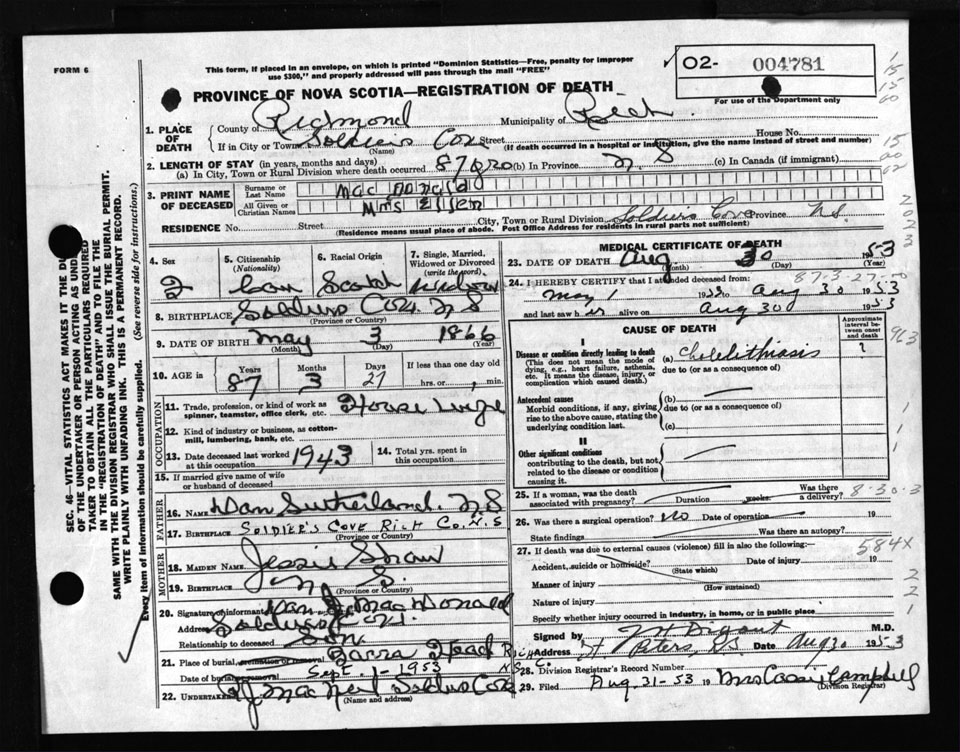 FORM 6
This form, if placed in an envelope, on which is printed "Dominion Statistics—Free, penalty for improper
use $300," and properly addressed will pass through the mail "FREE"
02- 004781
For use of the Department only
PROVINCE OF NOVA SCOTIA—REGISTRATION OF DEATH
1. PLACE OF DEATH
County of Richmond Municipality of Rich
If in City or Town Soldiers Cove Street House No.
(Name) (If death occurred in a hospital or institution, give the name instead of street and number)
2. LENGTH OF STAY (in years, months and days)
(a) In City, Town or Rural Division where death occurred 87 (b) In Province N S (c) In Canada (if immigrant)
3. PRINT NAME OF DECEASED
Surname or Last Name Mac Donald
All Given or Christian Names Mrs Ellen
RESIDENCE No. Street City, Town or Rural Division Soldiers Cove Province N.S.
(Residence means usual place of abode. Post Office Address for residents in rural parts not sufficient)
4. Sex
5. Citizenship (Nationality)
6. Racial Origin
7. Single, Married, Widowed or Divorced (write the record)
F Can Scotch Widow
8. BIRTHPLACE Soldiers Cove. N S
(Province or Country)
9. DATE OF BIRTH May 3 1866
(Month) (Day) (Year)
10. AGE in Years Months Days If less than one day old
87 3 27 hrs. or min.
OCCUPATION
11. Trade, profession, or kind of work as spinner, teamster, office clerk, etc. House Wife
12. Kind of industry or business, as cotton-mill, lumbering, bank, etc.
13. Date deceased last worked at this occupation 1943
14. Total yrs. spent in this occupation
15. If married give name of wife or husband of deceased
FATHER
16. NAME Dan Sutherland. N S
17. BIRTHPLACE SOLDIER'S COVE RICH CO. N.S
(Province or Country)
MOTHER
18. MAIDEN NAME Jessie Shaw
19. BIRTHPLACE N S.
(Province or Country)
20. Signature of informant Dan J. MacDonald
Address Soldiers Cove.
Relationship to deceased Son.
21. Place of burial, cremation or removal Barra Head RICH. CO. N.S.
Date of burial, cremation or removal Sept. 1-1953
22. UNDERTAKER J MacNeil Soldiers Cove
(Name and address)
MEDICAL CERTIFICATE OF DEATH
23. DATE OF DEATH Aug 30 1953
(Month) (Day)
24. I HEREBY CERTIFY that I attended deceased from:
87-3-27
May 1 1953 to Aug 30 1953
and last saw her alive on Aug 30 1953
CAUSE OF DEATH
Approximate interval between onset and death
I
Disease or condition directly leading to death (a) Cholelithiasis ?
(This does not mean the mode of dying, e.g., heart failure, asthenia, etc. It means the disease, injury, or complication which caused death.)
due to (or as a consequence of)
Antecedent causes (b)
Morbid conditions, if any, giving rise to the above cause, stating the underlying condition last.
due to (or as a consequence of)
(c)
II
Other significant conditions
contributing to the death, but not related to the disease or condition causing it.
25. If a woman, was the death associated with pregnancy? Duration weeks. Was there a delivery? 8-30-3
26. Was there a surgical operation? No Date of operation 19
State findings Was there an autopsy?
27. If death was due to external causes (violence) fill in also the following:
584X
Accident, suicide or homicide? Date of injury 19
(State which)
Manner of injury
(How sustained)
Nature of injury
Specify whether injury occurred in industry, in home, or in public place
Signed by M.D.
St Peters, N.S Date Aug 30 1953
28. Division Registrar's Record Number
29. Filed Aug. 31-53 19 Mrs Cassie Campbell
(Division Registrar)
SEC. 46—VITAL STATISTICS ACT MAKES IT THE DU
OF THE UNDERTAKER OR PERSON ACTING AS UND
TAKER TO OBTAIN ALL THE PARTICULARS REQUIRED
IN THE "REGISTRATION OF DEATH" AND TO FILE THE
SAME WITH THE DIVISION REGISTRAR WHO SHALL ISSUE THE BURIAL PERMIT.
WRITE PLAINLY WITH UNFADING INK. THIS IS A PERMANENT RECORD.
Every item of information should be carefully supplied. (See reverse side for instructions.)